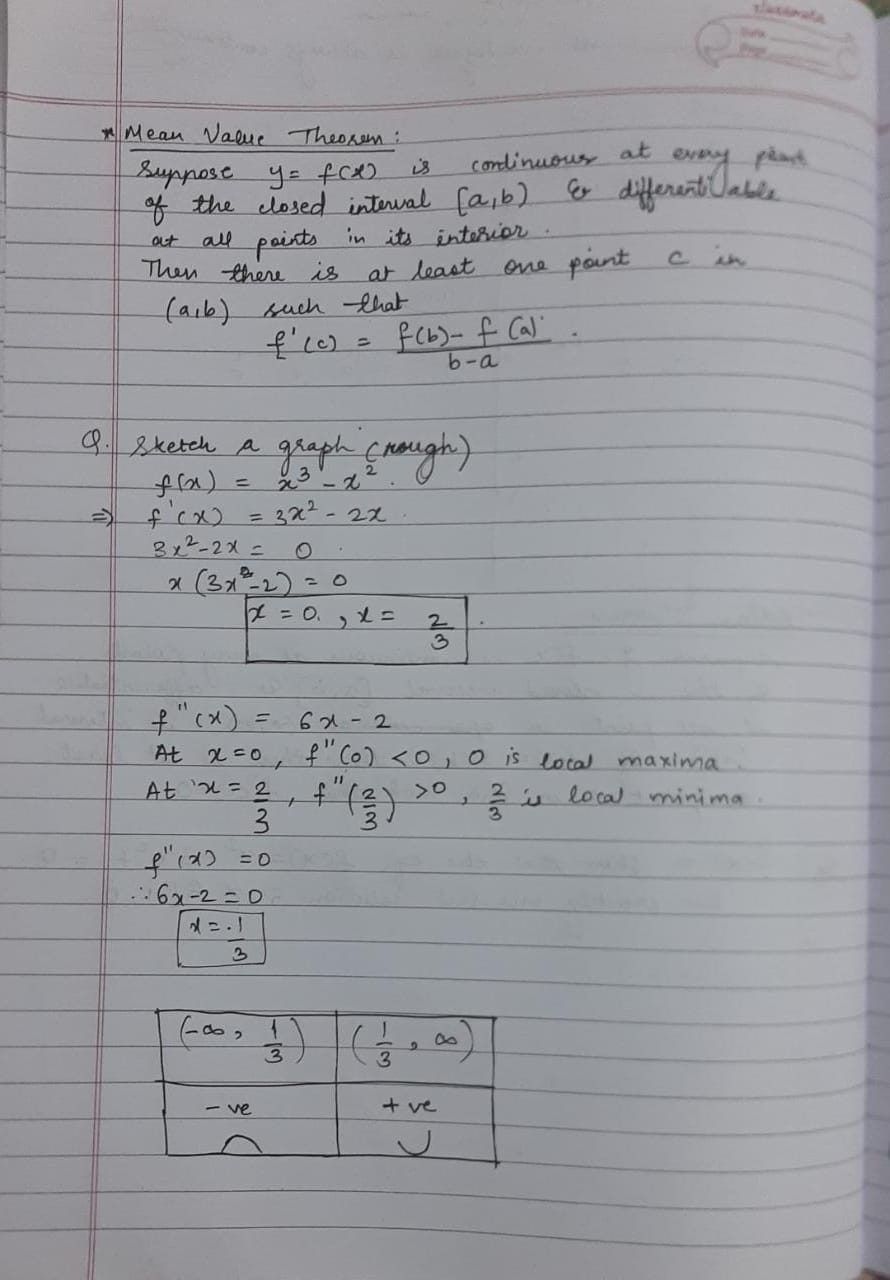 classmate
Date
Page
* Mean Value Theorem :
Suppose y = f(x) is continuous at every point
of the closed interval [a,b) & differentiable
at all points in its interior.
Then there is at least one point c in
(a,b) such that
f'(c) = f(b) - f(a) / b-a .
Q. Sketch a graph (rough)
f(x) = x³ - x² .
⇒ f'(x) = 3x² - 2x .
3x² - 2x = 0 .
x (3x - 2) = 0
x = 0. , x = 2/3 .
f"(x) = 6x - 2
At x=0, f"(0) <0, 0 is local maxima
At x = 2/3 , f"(2/3) >0 , 2/3 is local minima .
f"(x) = 0
∴ 6x-2 = 0
x = 1/3
(-∞, 1/3) (1/3, ∞)
- ve + ve